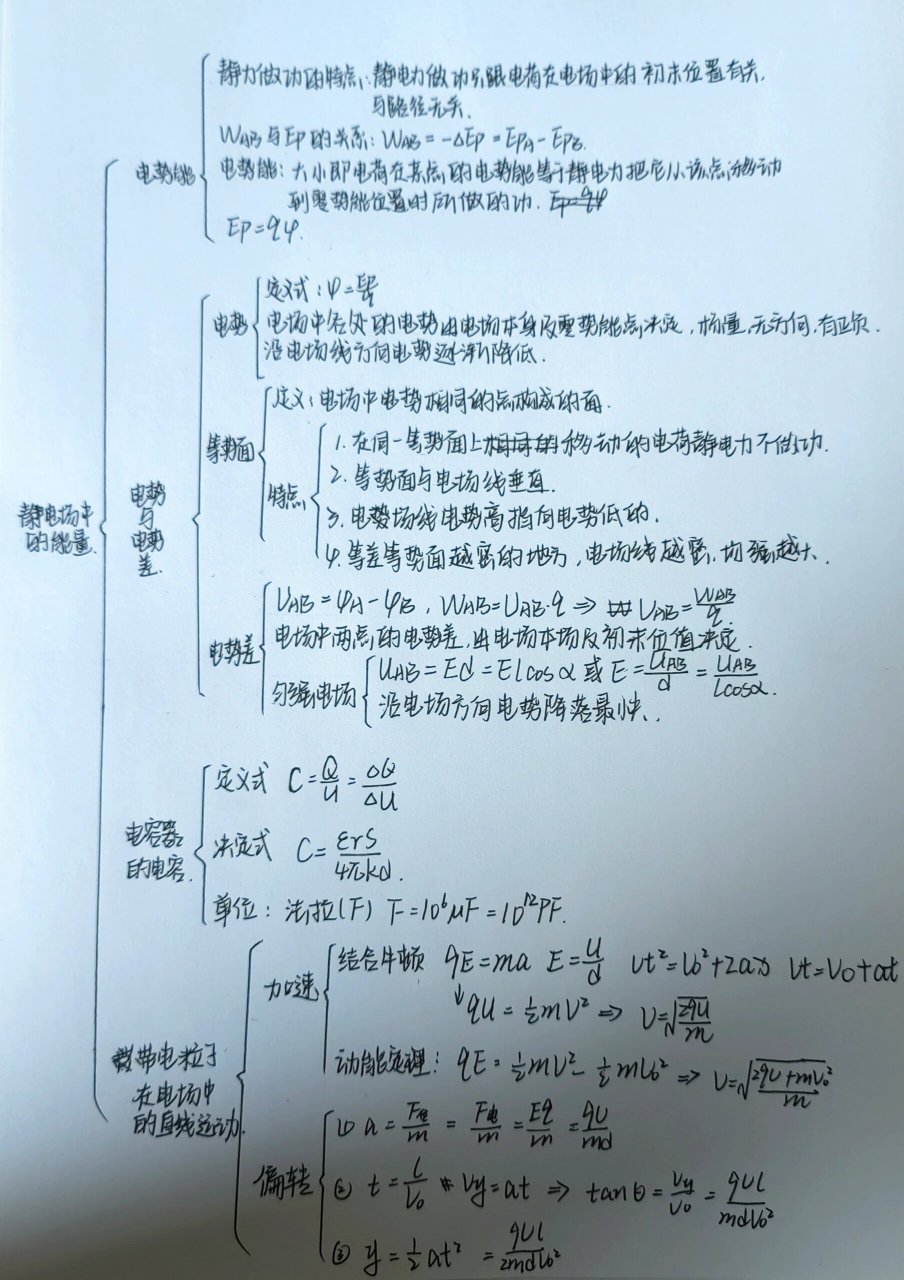 静力做功的特点：静电力做功只跟电荷在电场中的初末位置有关，
与路径无关．
WAB与EP的关系：WAB=-ΔEP=EPA-EPB．
电势能
电势能：大小即电荷在某点的电势能等于静电力把它从该点移动
到零势能位置时所做的功．EP=qφ
EP=qφ．
定义式：φ=EP/q
电势
电场中各处的电势由电场本身及零势能点决定，标量，无方向，有正负．
沿电场线方向电势逐渐降低．
定义：电场中电势相同的点构成的面．
等势面
1．在同一等势面上相同的移动的电荷静电力不做功．
2．等势面与电场线垂直．
特点
3．电势场线电势高指向电势低的．
4．等差等势面越密的地方，电场线越密，场强越大．
静电场中
的能量．
电势
与
电势
差．
UAB=φA-φB，WAB=UAB·q ⇒ UAB=WAB/q．
电势差
电场中两点的电势差，由电场本场及初末位值决定．
匀强电场
UAB=Ed=Elcosα 或 E=UAB/d=UAB/lcosα．
沿电场方向电势降落最快．
定义式 C=Q/U=ΔQ/ΔU
电容器
的电容．
决定式 C=εrS/4πkd．
单位：法拉(F) F=10⁶μF=10¹²PF．
加速
结合牛顿 qE=ma E=U/d vt²=v0²+2ax vt=v0+at
↓qU=½mv² ⇒ v=√(2qU/m)
动能定理：qE=½mv²-½mv0² ⇒ v=√((2qU+mv0²)/m)
带电粒子
在电场中
的直线运动．
偏转
① a=F电/m=F电/m=Eq/m=qU/md
② t=l/v0 vy=at ⇒ tanθ=vy/v0=qUl/mdv0²
③ y=½at²=qUl/2mdv0²